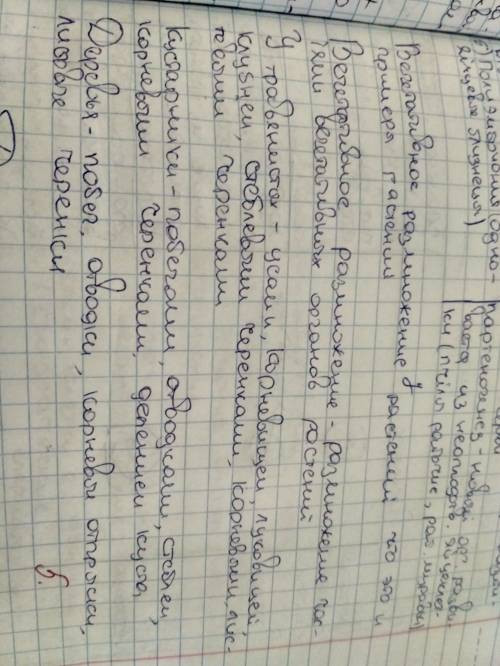 5) Полиэмбриония (одно-
яйцевые близнецы)
партеногенез - новый орг разви
вается из неоплодотв. яйцеклет-
ки (пчёлы рабочие, рай муравьи)
Вегетативное размножение у растений что это и
примеры растений
Вегетативное размножение - размножение час-
тями вегетативных органов растений
У травянистых - усами, корневищем, луковицей,
клубнем, стеблевыми черенками, корневыми, лис-
товыми черенками
Кустарники - побегами, отводками, стеблем,
корневыми черенками, делением куста
Деревья - побег, отводки, корневые отпрыски,
листовые черенки
5.